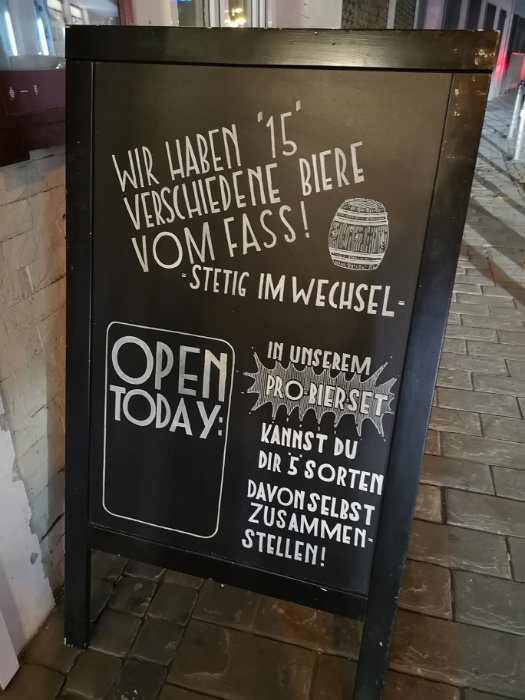 WIR HABEN "15"
VERSCHIEDENE BIERE
VOM FASS!
-STETIG IM WECHSEL-
OPEN
TODAY:
IN UNSEREM
PRO-BIERSET
KANNST DU
DIR "5" SORTEN
DAVON SELBST
ZUSAMMEN-
STELLEN!